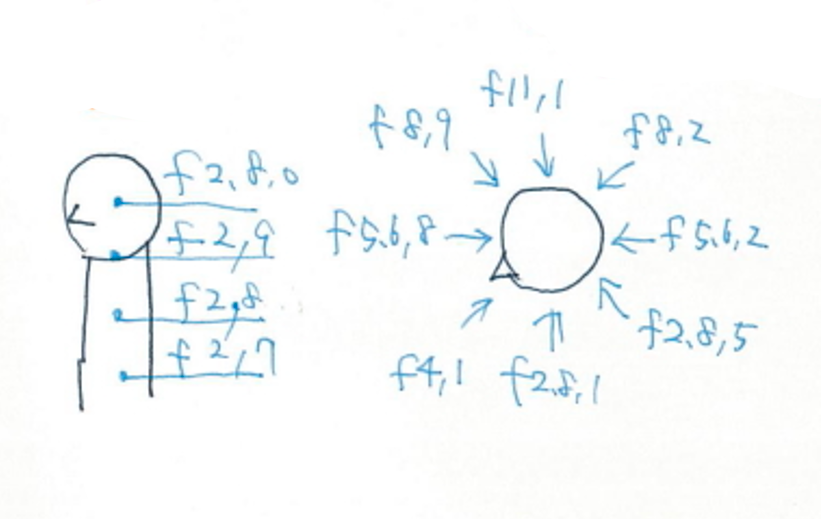 f2.8,0
f2,9
f2,8
f2,7
f11,1
f8,9
f8,2
f5.6,8
f5.6,2
f4,1
f2.8,1
f2.8,5